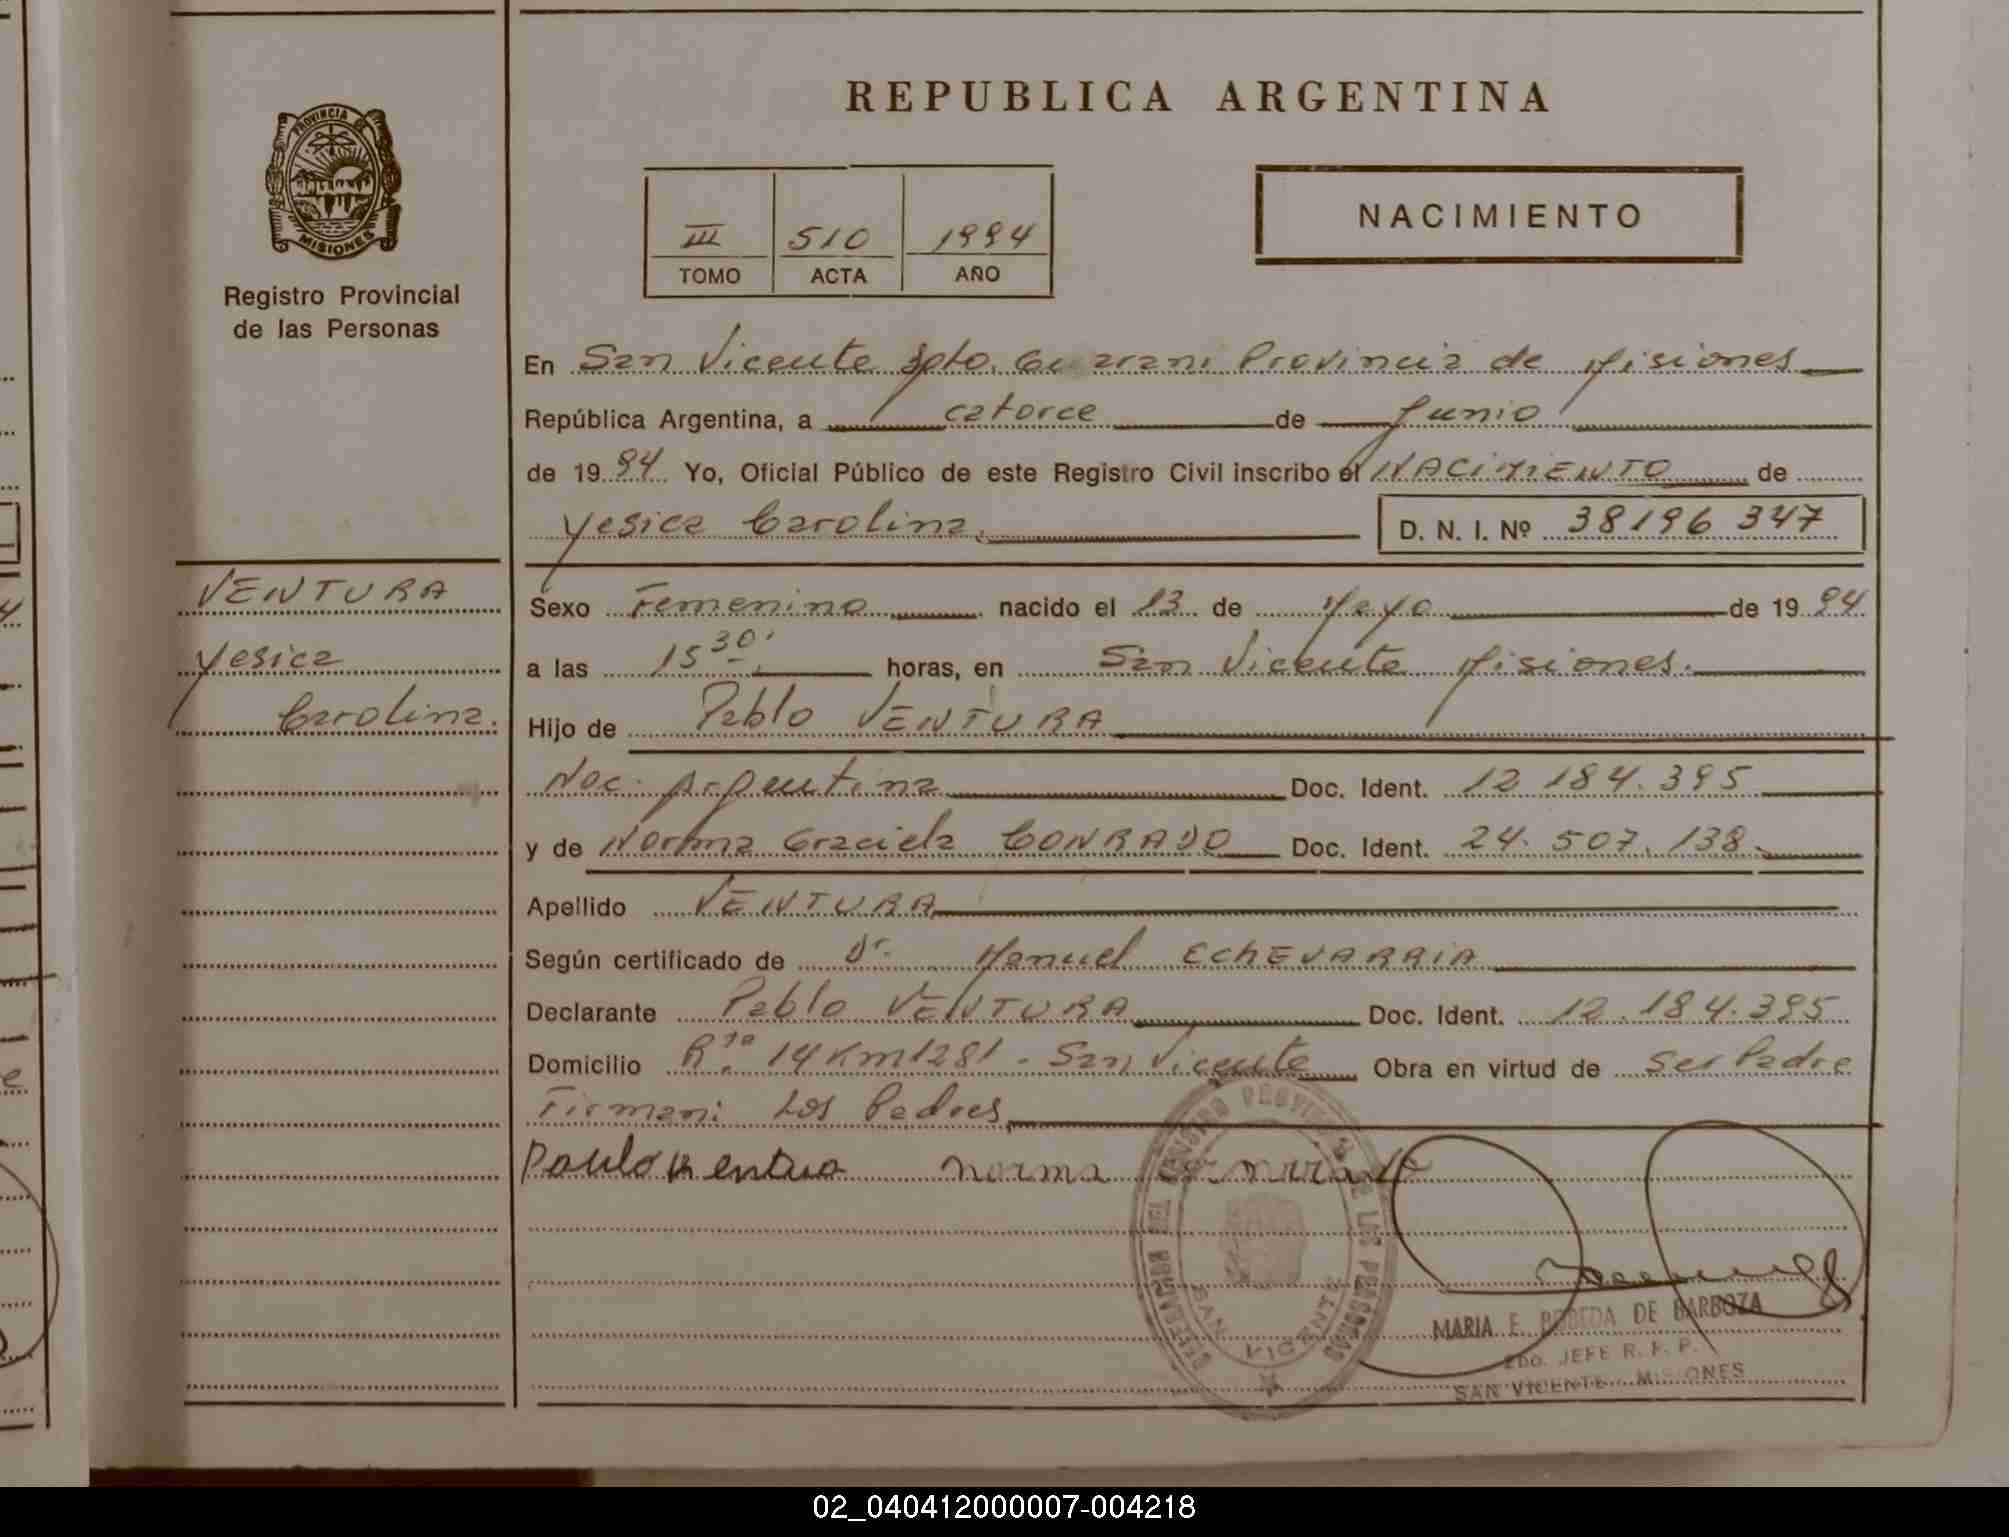 PROVINCIA DE
MISIONES
Registro Provincial
de las Personas
VENTURA
Yesica
Carolina.
REPUBLICA ARGENTINA
III 510 1994
TOMO ACTA AÑO
NACIMIENTO
En San Vicente Dpto. Guarani Provincia de Misiones
República Argentina, a catorce de Junio
de 1994 Yo, Oficial Público de este Registro Civil inscribo el NACIMIENTO de
Yesica Carolina.
D. N. I. Nº 38196 347
Sexo Femenino nacido el 13 de Mayo de 1994
a las 15 30' horas, en San Vicente Misiones.
Hijo de Pablo VENTURA
Nac. Argentina Doc. Ident. 12 184.395
y de Norma Graciela CONRADO Doc. Ident. 24. 507. 138.
Apellido VENTURA
Según certificado de Dr. Manuel EChEVARRIA
Declarante Pablo VENTURA Doc. Ident. 12.184.395
Domicilio Rta. 14 Km 1281 - San Vicente Obra en virtud de Ser Padre
Firman: Los Padres
norma
DELEGACION DEL REGISTRO PROVINCIAL DE LAS PERSONAS
SAN VICENTE
MARIA E. DE BARBOZA
2DO. JEFE R. P. P.
SAN VICENTE - MISIONES
02_040412000007-004218